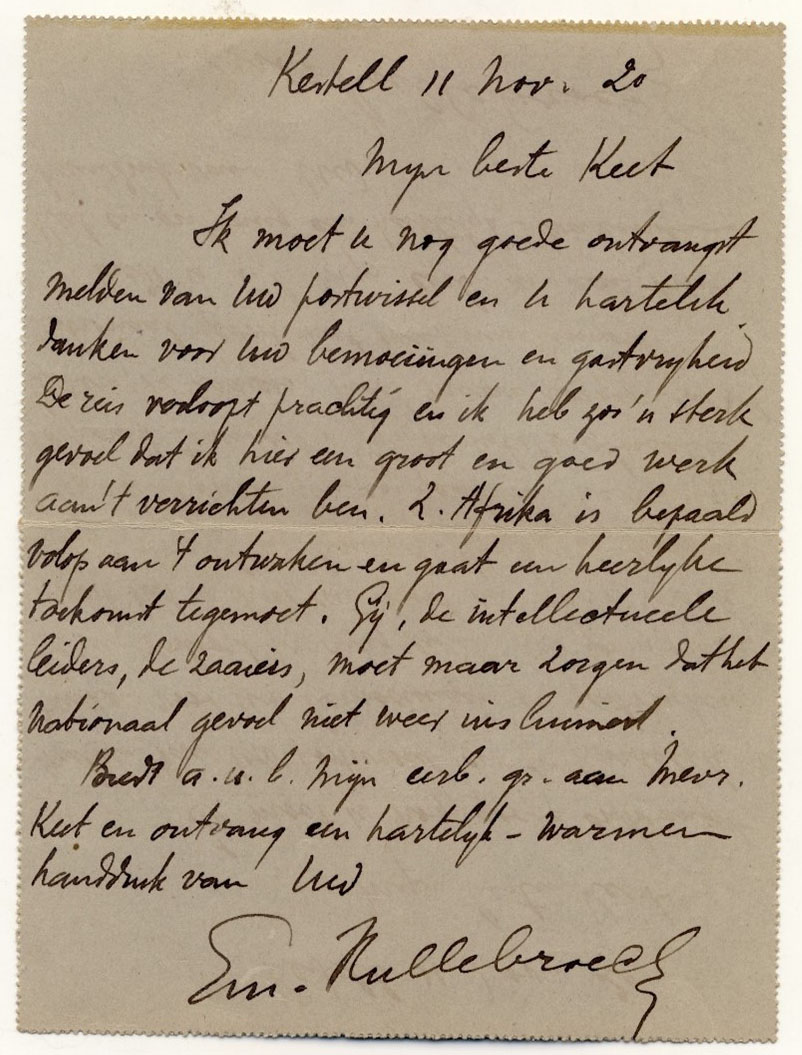 Kestell 11 Nov. 20
Mijn beste Keet
Ik moet u nog goede ontvangst
melden van Uw postwissel en U hartelik
danken voor Uw bemoeiingen en gastvrijheid
De reis verloopt prachtig en ik heb zoo'n sterk
gevoel dat ik hier een groot en goed werk
aan 't verrichten ben. Z. Afrika is bepaald
volop aan 't ontwaken en gaat een heerlijke
toekomst tegemoet. Gij, de intellectueele
leiders, de zaaiers, moet maar zorgen dat het
nationaal gevoel niet weer insluimert.
Biedt a.u.b. mijn eerb. gr. aan Mevr.
Keet en ontvang een hartelijk-warmen
handdruk van Uw
Em. Hullebroeck